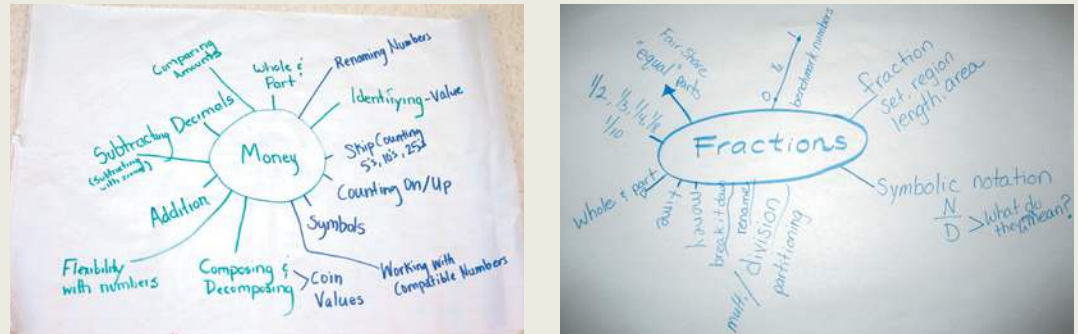 Comparing
Amounts
Whole &
Part
Renaming Numbers
Identifying-Value
Skip Counting
5's, 10's, 25's
Counting On/Up
Symbols
Working with
Compatible Numbers
Coin
Values
Composing &
Decomposing
Flexibility
with numbers
Addition
Subtracting
(Subtracting
with
Decimals
Money
Fair Share
"equal" parts
1/2, 1/3, 1/4, 1/8
1/10
0
1
benchmark numbers
fraction
set, region
length, area
Symbolic notation
N
D
> What do
they mean?
Fractions
Whole & part
time
money
break it down
rename
mult./division
partitioning